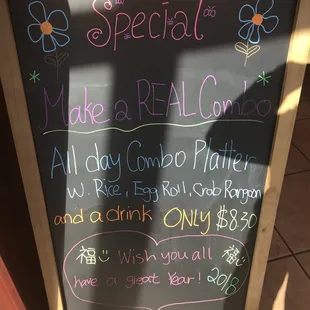 Special
Make a REAL Combo
All day Combo Platter
W. Rice, Egg Roll, Crab Rangoon
and a drink ONLY $8.30
福 Wish you all 福
have a great Year! 2018